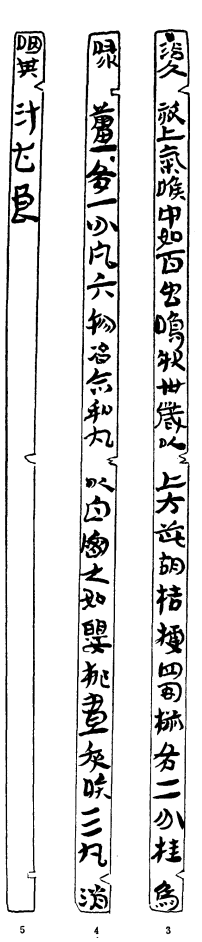 治久欬上氣喉中如百虫鳴狀卅歲以上方茈胡桔梗蜀椒各二分桂烏
喙薑各一分凡六物冶合和丸以白密大如嬰桃晝夜唅三丸消
咽其汁甚良
3
4
5